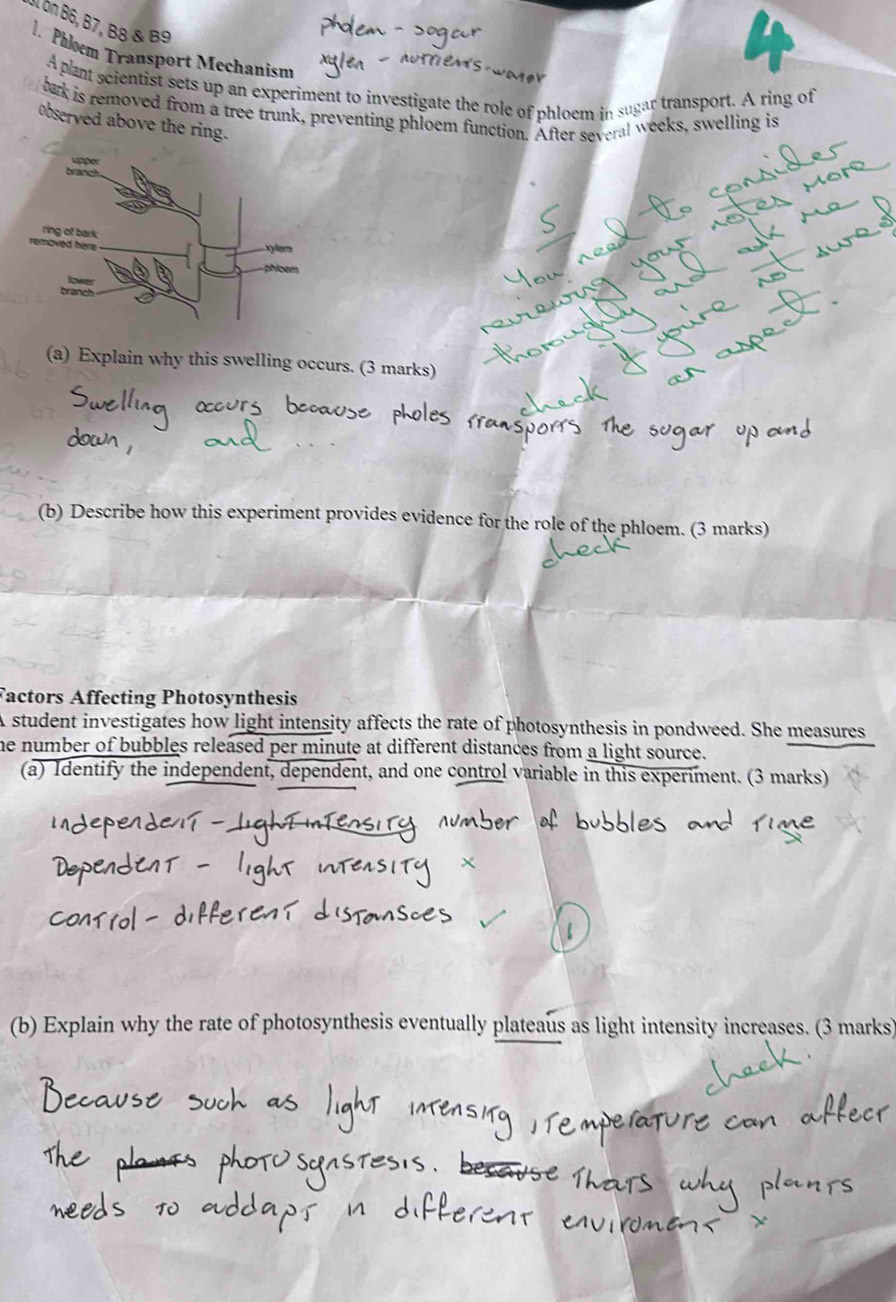 on B6, B7, B8 & B9
phdem - sogar
xylen - nutrients, water
4
1. Phloem Transport Mechanism
A plant scientist sets up an experiment to investigate the role of phloem in sugar transport. A ring of
bark is removed from a tree trunk, preventing phloem function. After several weeks, swelling is
observed above the ring.
upper
branch
ring of bark
removed here
xylem
phloem
lower
branch
5
You need to consider
reviewing your notes more
thoroughly and ask me
if you're not sure of
an aspect.
(a) Explain why this swelling occurs. (3 marks)
check
Swelling occurs because pholes transports the sugar up and
down, and ...
(b) Describe how this experiment provides evidence for the role of the phloem. (3 marks)
check
Factors Affecting Photosynthesis
A student investigates how light intensity affects the rate of photosynthesis in pondweed. She measures
he number of bubbles released per minute at different distances from a light source.
(a) Identify the independent, dependent, and one control variable in this experiment. (3 marks)
independent - light intensity number of bubbles and time x
Dependent - light intensity x
control - different distansces ✓ 1
(b) Explain why the rate of photosynthesis eventually plateaus as light intensity increases. (3 marks)
check.
Because such as light intensity, temperature can affect
the plants photosynstesis. because Thats why plants
needs to addapt in different enviroment x